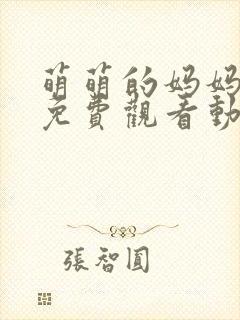 萌萌的妈妈
免費觀看動
張智圓